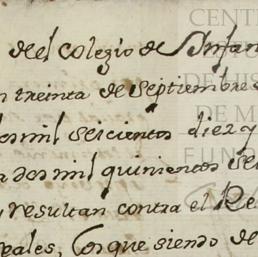 del colegio de Infan
n treinta de septiembre
dos mil seicientos diez y
a dos mil quinientos se
y resultan contra el Re
eales, Cos que siendo de
CENT
DE
DE M
FUND